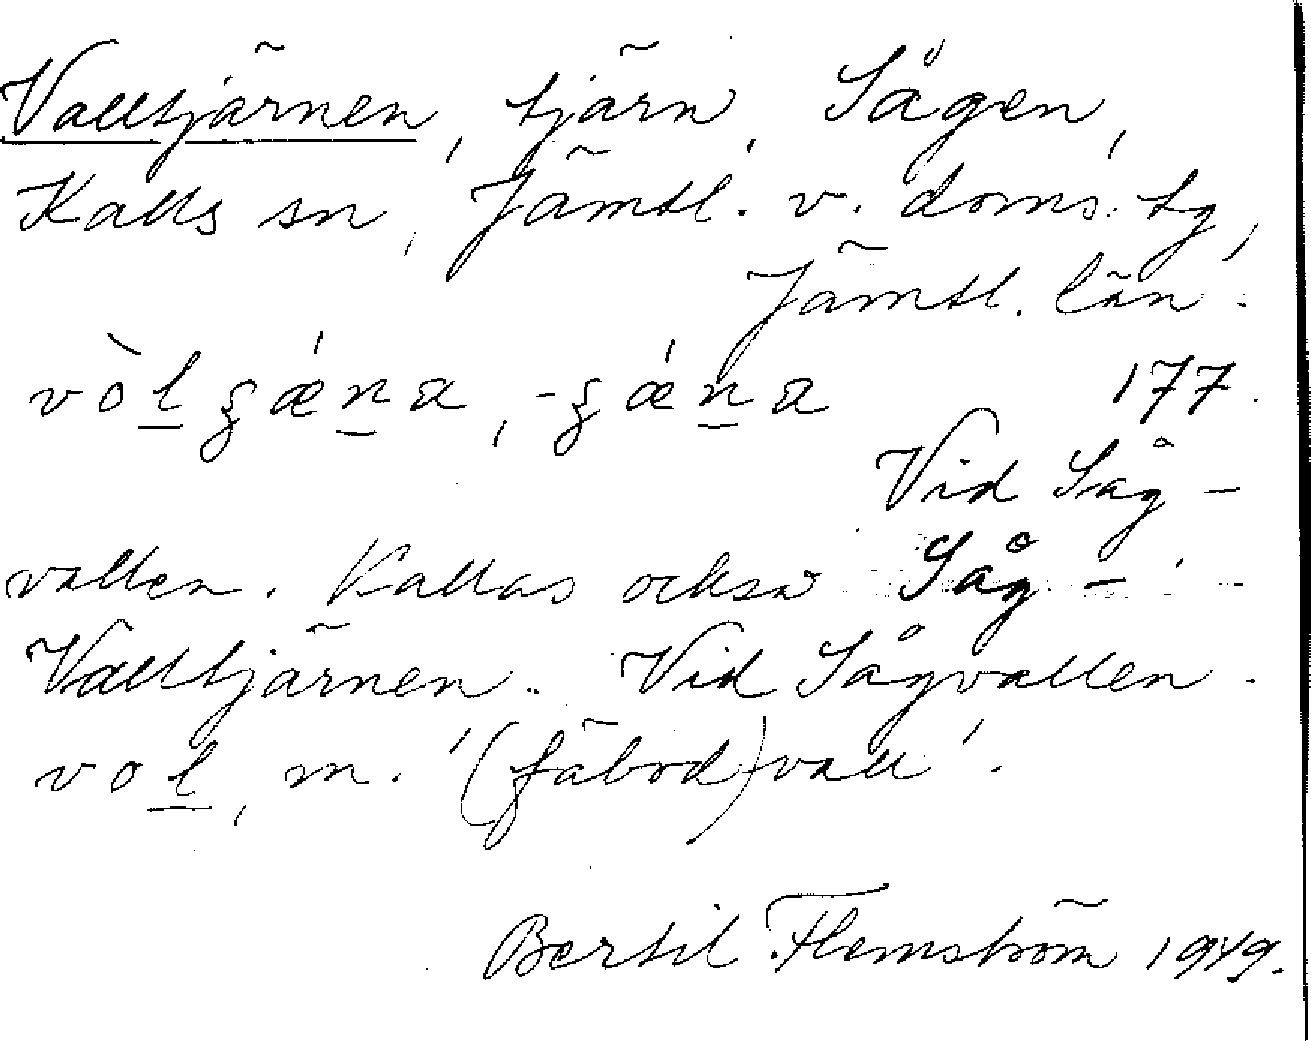 Valltjärnen, tjärn, Sågen,
Kalls sn, Jämtl. v. doms. tg,
Jämtl. län.
vòl̲ʒǽn̲a, -ʒǽn̲a 177.
Vid Såg-
vallen. Kallas också Såg-
Valltjärnen. Vid Sågvallen.
vol̲, m. '(fäbod)vall'.
Bertil Flemström 1949.